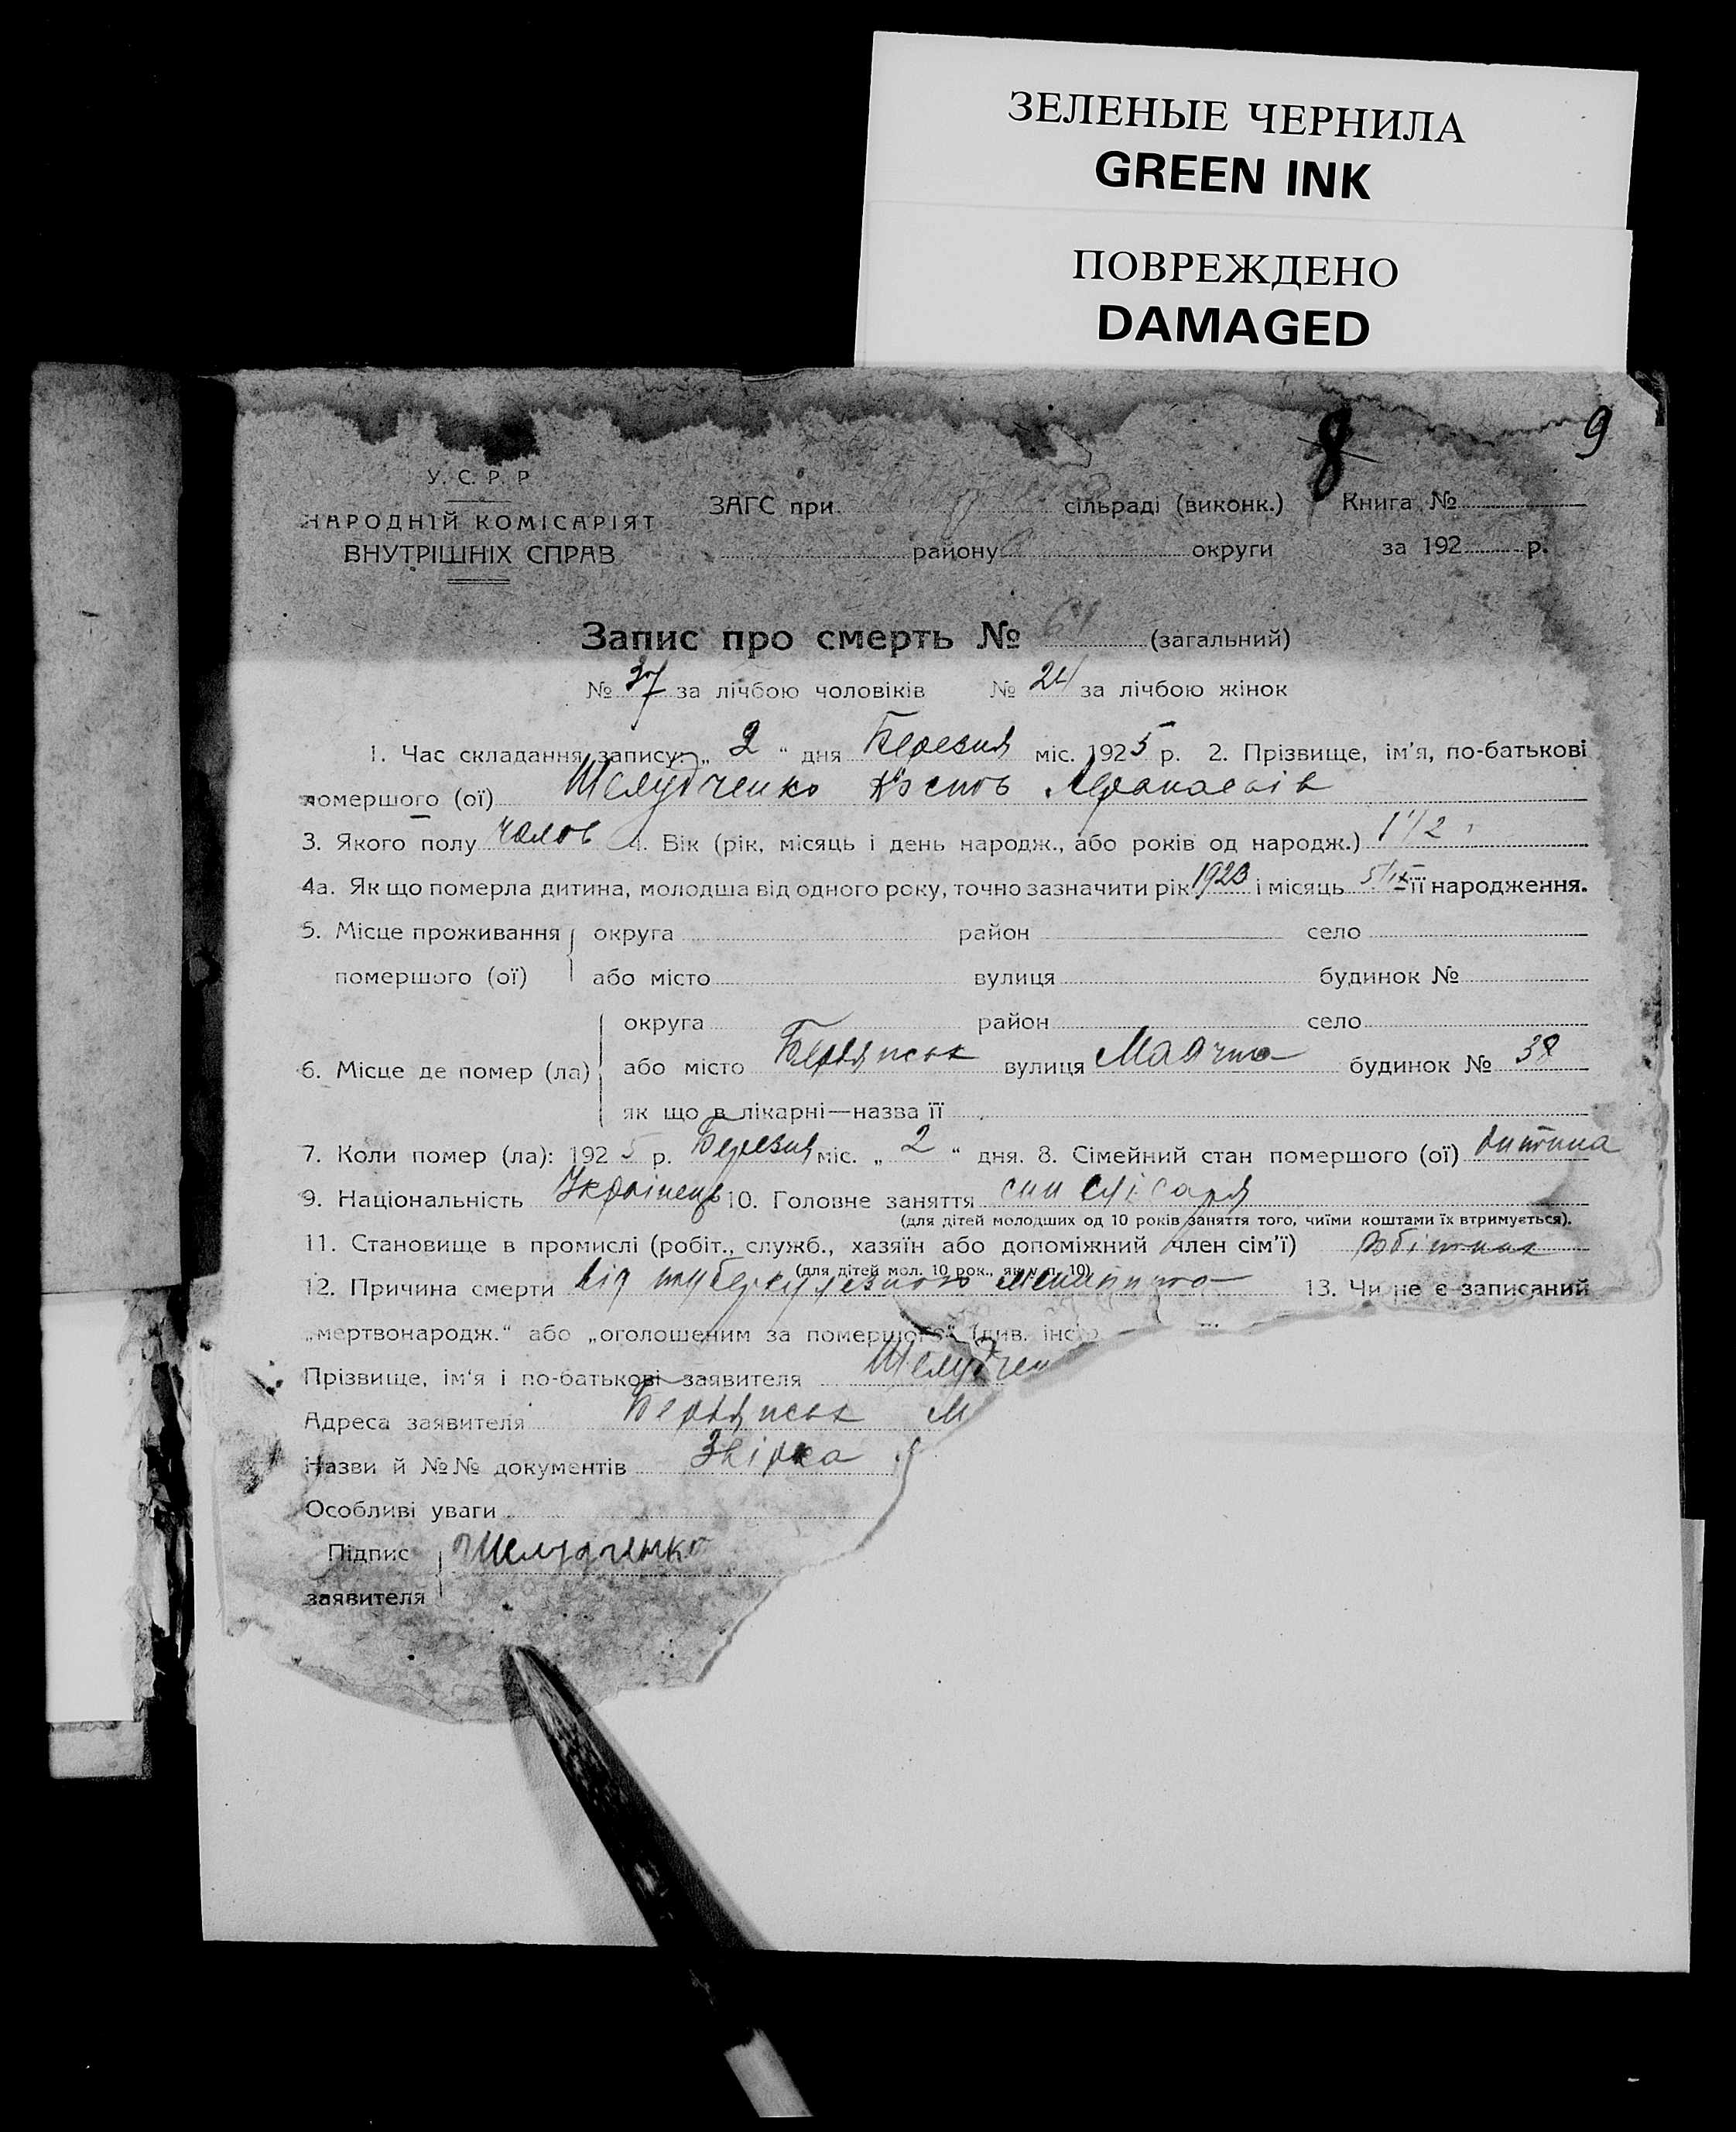 ЗЕЛЕНЫЕ ЧЕРНИЛА
GREEN INK
ПОВРЕЖДЕНО
DAMAGED
8 9
У. С. Р. Р.
НАРОДНІЙ КОМІСАРІЯТ
ВНУТРІШНІХ СПРАВ
ЗАГС при сільраді (виконк.) Книга №
району округи за 192 р.
Запис про смерть № 61 (загальний)
№ 37 за лічбою чоловіків № 24 за лічбою жінок
1. Час складання запису: „ 2 “ дня Березня міс. 1925 р. 2. Прізвище, ім’я, по-батькові
помершого (ої) Шелудченко
3. Якого полу чолов 4. Вік (рік, місяць і день народж., або років од народж.) 1 1/2
4а. Як що померла дитина, молодша від одного року, точно зазначити рік 1923 і місяць 5/IX її народження.
5. Місце проживання округа район село
помершого (ої) або місто вулиця будинок №
округа район село
6. Місце де помер (ла) або місто Бердянськ вулиця Маячна будинок № 38
як що в лікарні—назва її
7. Коли помер (ла): 1925 р. Березня міс. „ 2 “ дня. 8. Сімейний стан помершого (ої) дитина
9. Національність Українець 10. Головне заняття син слісаря
(для дітей молодших од 10 років заняття того, чиїми коштами їх втримується).
11. Становище в промислі (робіт., служб., хазяїн або допоміжний член сім’ї) робітник
(для дітей мол. 10 рок., як у п. 10)
12. Причина смерти від туберкулезного менінгита 13. Чи не є записаний
„мертвонародж.“ або „оголошеним за помершого“ (див. інстр
Прізвище, ім’я і по-батькові заявителя Шелудчен
Адреса заявителя Бердянськ М
Назви й №№ документів Звірка
Особливі уваги
Підпис Шелудченко
заявителя